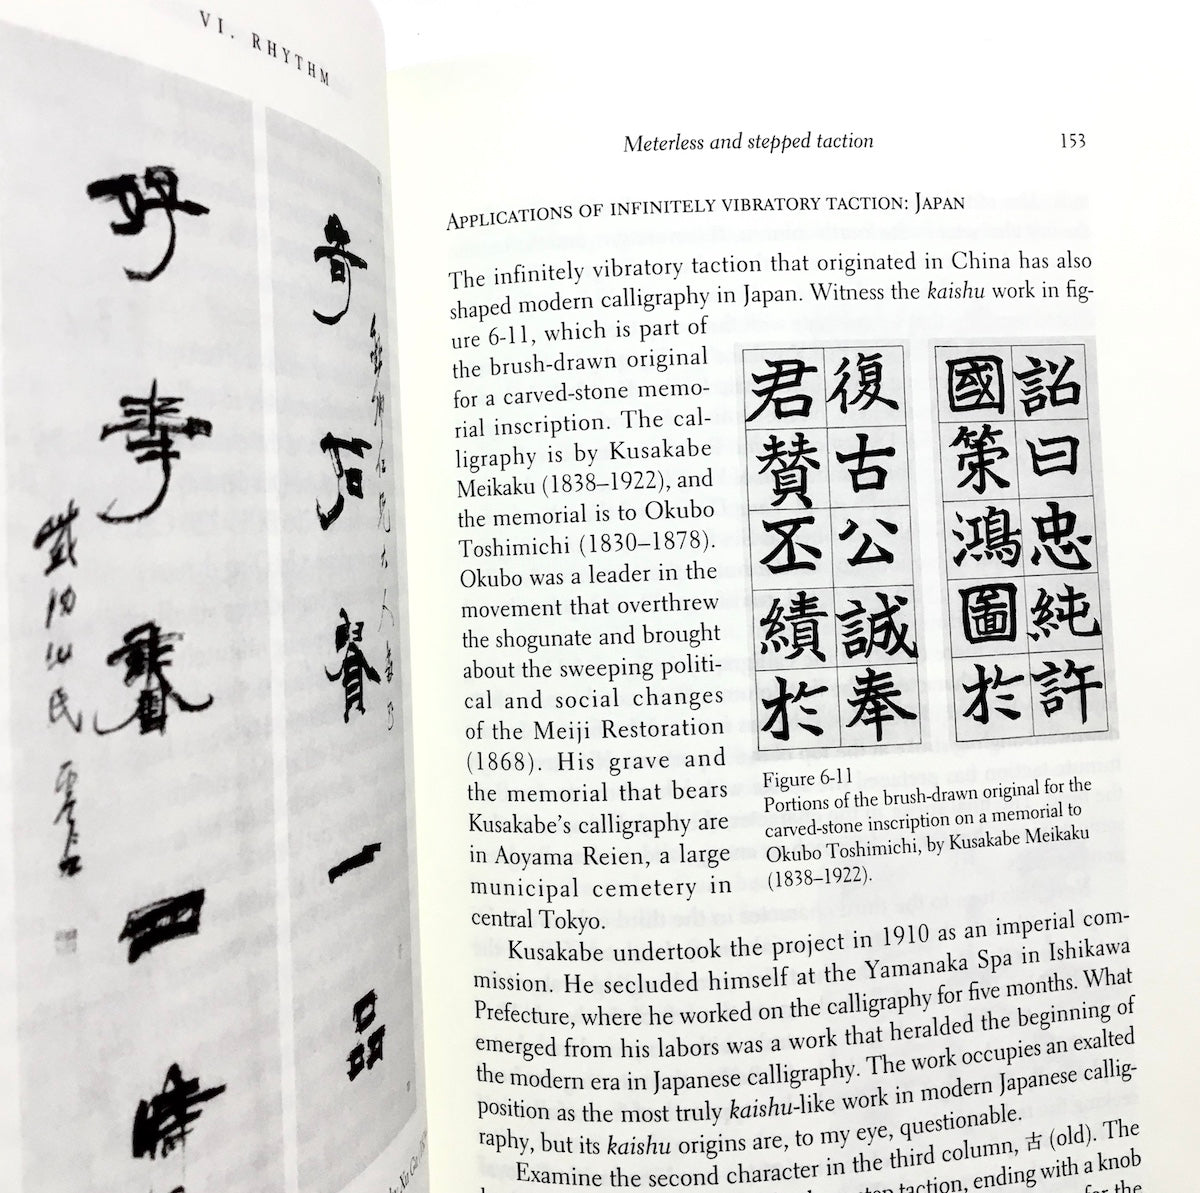 VI. RHYTHM
奇石一品
四時
Meterless and stepped taction 153
APPLICATIONS OF INFINITELY VIBRATORY TACTION: JAPAN
The infinitely vibratory taction that originated in China has also
shaped modern calligraphy in Japan. Witness the kaishu work in fig-
ure 6-11, which is part of
the brush-drawn original
for a carved-stone memo-
rial inscription. The cal-
ligraphy is by Kusakabe
Meikaku (1838–1922), and
the memorial is to Okubo
Toshimichi (1830–1878).
Okubo was a leader in the
movement that overthrew
the shogunate and brought
about the sweeping politi-
cal and social changes
of the Meiji Restoration
(1868). His grave and
the memorial that bears
Kusakabe's calligraphy are
in Aoyama Reien, a large
municipal cemetery in
central Tokyo.
詔曰忠純許
國策鴻圖於
復古公誠奉
君賛丕績於
Figure 6-11
Portions of the brush-drawn original for the
carved-stone inscription on a memorial to
Okubo Toshimichi, by Kusakabe Meikaku
(1838–1922).
Kusakabe undertook the project in 1910 as an imperial com-
mission. He secluded himself at the Yamanaka Spa in Ishikawa
Prefecture, where he worked on the calligraphy for five months. What
emerged from his labors was a work that heralded the beginning of
the modern era in Japanese calligraphy. The work occupies an exalted
position as the most truly kaishu-like work in modern Japanese callig-
raphy, but its kaishu origins are, to my eye, questionable.
Examine the second character in the third column, 古 (old). The
taction, ending with a knob
for the